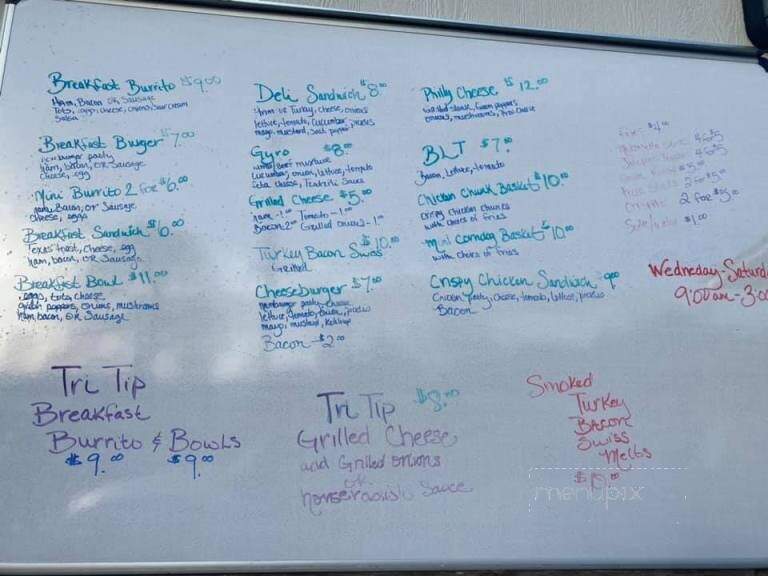 Breakfast Burrito $9.00
Ham, Bacon OR Sausage
Tots, egg, cheese, onions, sour cream
Salsa
Breakfast Burger $7.00
hamburger patty
ham, bacon, OR Sausage
cheese, egg
Mini Burrito 2 for $6.00
Ham, Bacon, OR Sausage
cheese, eggs
Breakfast Sandwich $6.00
Texas toast, cheese, egg
ham, bacon, OR Sausage
Breakfast Bowl $11.00
eggs, tots, cheese
green peppers, onions, mushrooms
ham, bacon, OR Sausage
Deli Sandwich $8.00
Ham or Turkey, cheese, onions
lettuce, tomato, cucumber, pickles
mayo, mustard, salt, pepper
Gyro $8.00
lamb/beef mixture
cucumber, onion, lettuce, tomato
feta cheese, Tzatziki Sauce
Grilled Cheese $5.00
ham -1.00 Tomato -1.00
Bacon 2.00 Grilled onions -1.00
Turkey Bacon Swiss $10.00
Grilled
Cheeseburger $7.00
hamburger patty, cheese
lettuce, tomato, onion, pickles
mayo, mustard, Ketchup
Bacon - $2.00
Philly Cheese $12.00
steak, Green peppers
onions, mushrooms,
BLT $7.00
Bacon, lettuce, tomato
Chicken Chunk Basket $10.00
crispy chicken chunks
with choice of fries
Mini Corndog Basket $10.00
with choice of fries
Crispy Chicken Sandwich 9.00
Chicken patty, cheese, tomato, lettuce, pickles
Bacon
Fries $4.00
2 for $5.00
2 for $5.00
$1.00
Wednesday-Saturda
9:00am-3:00
Tri Tip
Breakfast
Burrito & Bowls
$9.00 $9.00
Tri Tip $8.00
Grilled Cheese
and Grilled onions
or
horseradish Sauce
Smoked
Turkey
Bacon
Swiss
Melts
$10.00
menupix